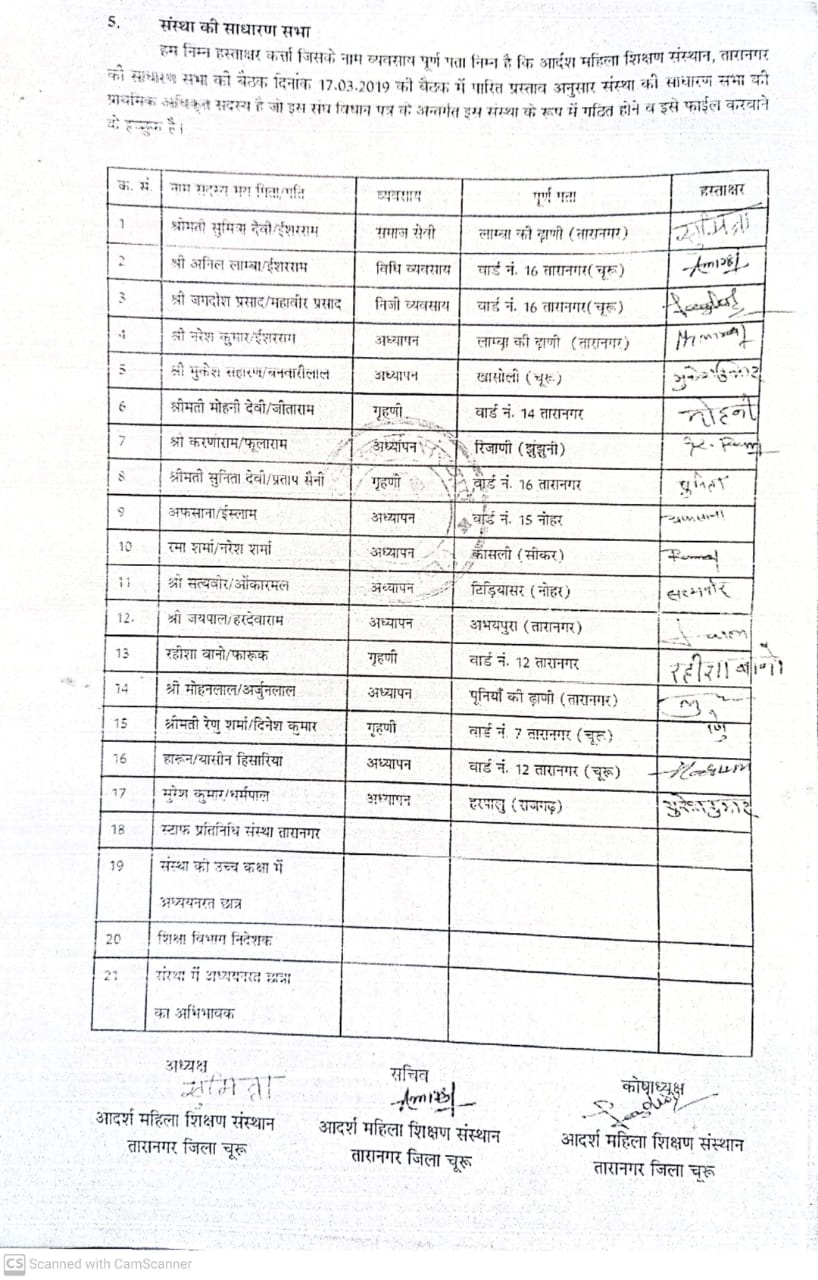 5. संस्था की साधारण सभा
हम निम्न हस्ताक्षर कर्त्ता जिसके नाम व्यवसाय पूर्ण पता निम्न है कि आर्दश महिला शिक्षण संस्थान, तारानगर
की साधारण सभा की बैठक दिनांक 17.03.2019 की बैठक में पारित प्रस्ताव अनुसार संस्था की साधारण सभा की
प्राथमिक अधिकृत सदस्य है जो इस संघ विधान पत्र के अन्तर्गत इस संस्था के रूप में गठित होने व इसे फाईल करवाने
के इच्छुक है।
क. सं. नाम सदस्य मय पिता/पति व्यवसाय पूर्ण पता हस्ताक्षर
1 श्रीमती सुमित्रा देवी/ईशरराम समाज सेवी लाम्बा की ढ़ाणी (तारानगर) सुमित्रा
2 श्री अनिल लाम्बा/ईशरराम विधि व्यवसाय वार्ड नं. 16 तारानगर(चूरू)
3 श्री जगदीश प्रसाद/महावीर प्रसाद निजी व्यवसाय वार्ड नं. 16 तारानगर(चूरू)
4 श्री नरेश कुमार/ईशरराम अध्यापन लाम्बा की ढ़ाणी (तारानगर)
5 श्री मुकेश सहारण/बनवारीलाल अध्यापन खासोली (चूरू)
6 श्रीमती मोहनी देवी/जीताराम गृहणी वार्ड नं. 14 तारानगर मोहनी
7 श्री करणाराम/फूलाराम अर्ध्यापन रिजाणी (झुंझुनी)
8 श्रीमती सुनिता देवी/प्रताप सैनी गृहणी वार्ड नं. 16 तारानगर सुनिता
9 अफसाना/ईस्लाम अध्यापन वार्ड नं. 15 नोहर अफसाना
10 रमा शर्मा/नरेश शर्मा अध्यापन कासली (सीकर)
11 श्री सत्यवीर/ओंकारमल अध्यापन टिड़ियासर (नोहर) सत्यवीर
12. श्री जयपाल/हरदेवाराम अध्यापन अभयपुरा (तारानगर)
13 रहीशा बानो/फारूक गृहणी वार्ड नं. 12 तारानगर रहीशा बानो
14 श्री मोहनलाल/अर्जुनलाल अध्यापन पूनियाँ की ढ़ाणी (तारानगर)
15 श्रीमती रेणु शर्मा/दिनेश कुमार गृहणी वार्ड नं. 7 तारानगर (चूरू) रेणु
16 हारून/यासीन हिसारिया अध्यापन वार्ड नं. 12 तारानगर (चूरू)
17 सुरेश कुमार/धर्मपाल अध्यापन हरपालु (राजगढ़) सुरेश कुमार
18 स्टाफ प्रतिनिधि संस्था तारानगर
19 संस्था की उच्च कक्षा में
अध्ययनरत छात्र
20 शिक्षा विभाग निदेशक
21 संस्था में अध्ययनरत छात्रा
का अभिभावक
अध्यक्ष सचिव कोषाध्यक्ष
सुमित्रा
आदर्श महिला शिक्षण संस्थान आदर्श महिला शिक्षण संस्थान आदर्श महिला शिक्षण संस्थान
तारानगर जिला चूरू तारानगर जिला चूरू तारानगर जिला चूरू
CS Scanned with CamScanner